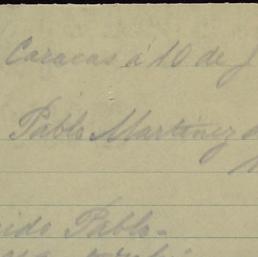 Caracas á 10 de J
Pablo Martínez
ido Pablo-